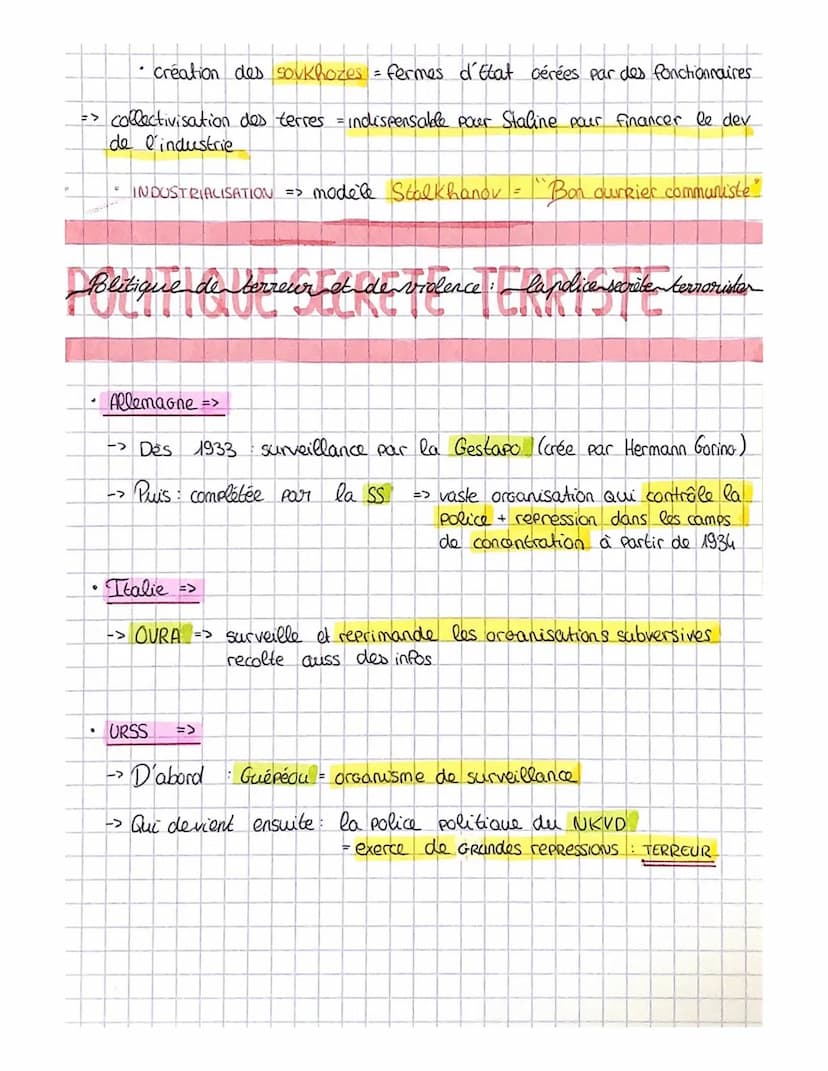 · création des sovkhozes = fermes d'État gérées par des fonctionnaires
=> collectivisation des terres = indispensable pour Staline pour financer le dev
de l'industrie
· INDUSTRIALISATION => modèle Stalkhanov = "Bon ouvrier communiste"
POLITIQUE SECRETE TERRISTE
Politique de terreur et de violence : la police secrète terroriste
· Allemagne =>
-> Dès 1933 : surveillance par la Gestapo (crée par Hermann Goring)
-> Puis : complétée par la SS => vaste organisation qui contrôle la
police + repression dans les camps
de concentration à partir de 1934
· Italie =>
-> OVRA => surveille et reprimande les organisations subversives
recolte auss des infos
· URSS =>
-> D'abord : Guépéou = organisme de surveillance
-> Qui devient ensuite : la police politique du NKVD
= exerce de GRANDES REPRESSIONS : TERREUR